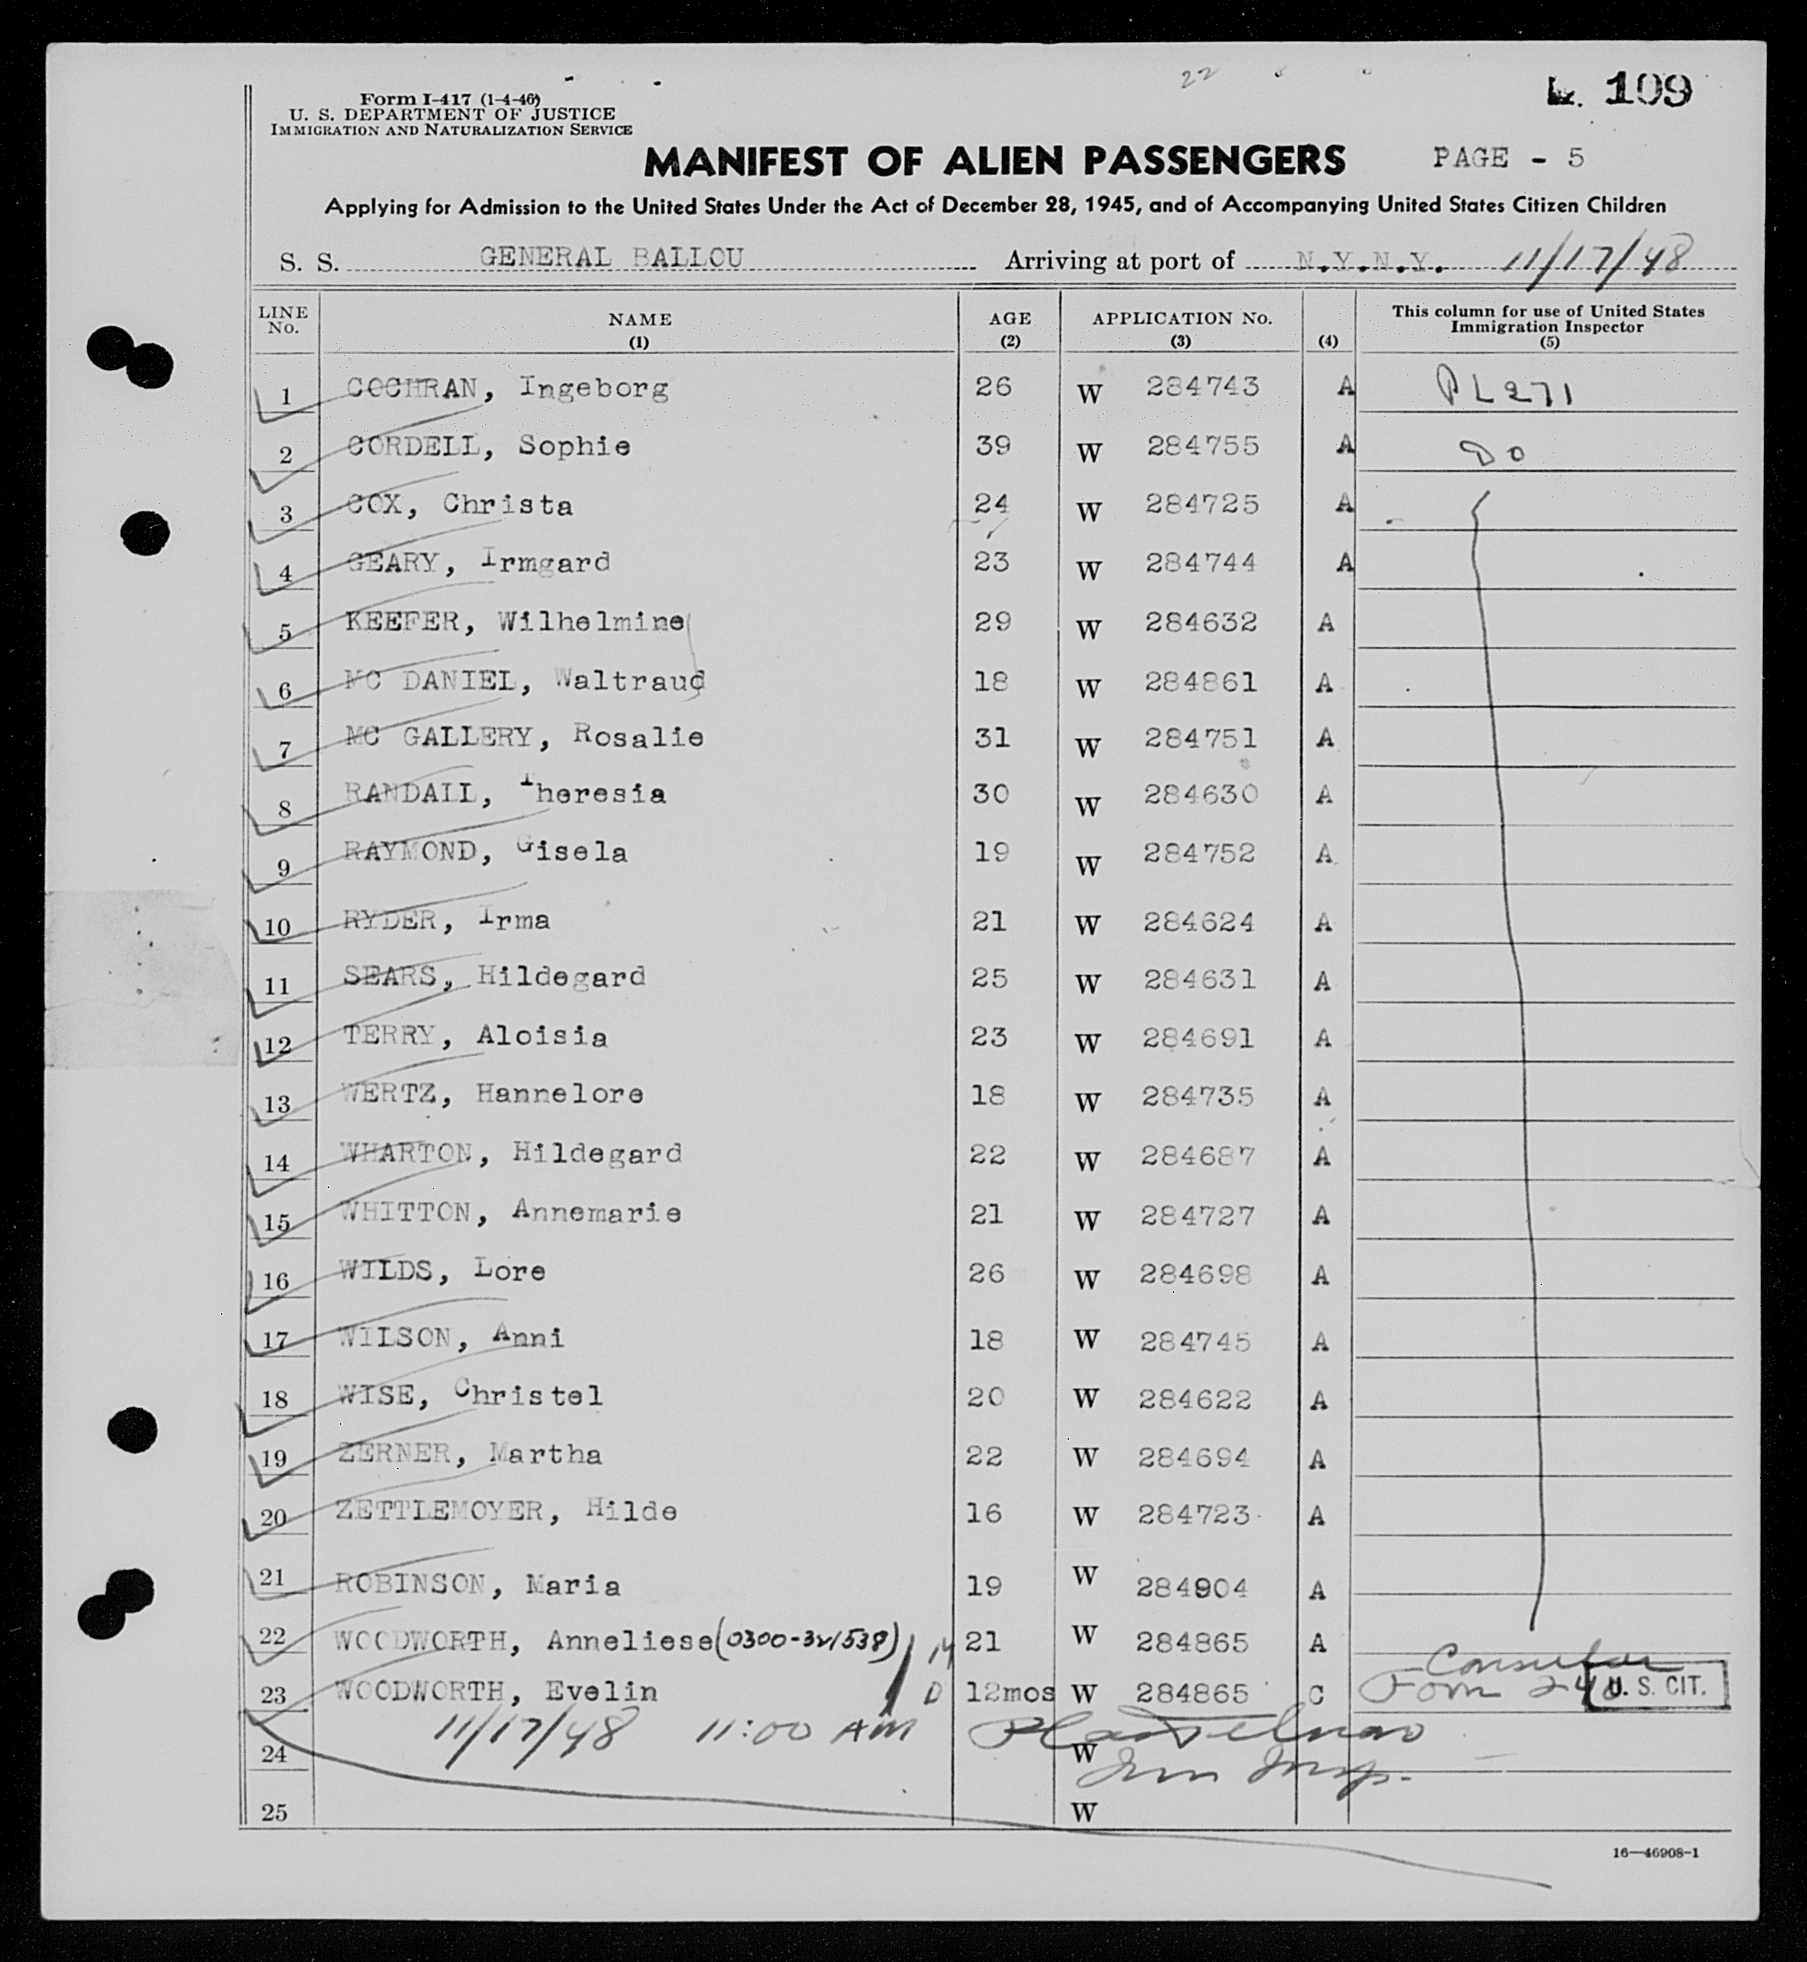 22
109
Form I-417 (1-4-46)
U. S. DEPARTMENT OF JUSTICE
IMMIGRATION AND NATURALIZATION SERVICE
MANIFEST OF ALIEN PASSENGERS PAGE - 5
Applying for Admission to the United States Under the Act of December 28, 1945, and of Accompanying United States Citizen Children
S. S. GENERAL BALLOU Arriving at port of N.Y.N.Y. 11/17/48
LINE No. NAME (1) AGE (2) APPLICATION No. (3) (4) This column for use of United States Immigration Inspector (5)
1 COCHRAN, Ingeborg 26 W 284743 A PL271
2 CORDELL, Sophie 39 W 284755 A Do
3 COX, Christa 24 W 284725 A
4 GEARY, Irmgard 23 W 284744 A
5 KEEFER, Wilhelmine 29 W 284632 A
6 MC DANIEL, Waltraud 18 W 284861 A
7 MC GALLERY, Rosalie 31 W 284751 A
8 RANDALL, Theresia 30 W 284630 A
9 RAYMOND, Gisela 19 W 284752 A
10 RYDER, Irma 21 W 284624 A
11 SEARS, Hildegard 25 W 284631 A
12 TERRY, Aloisia 23 W 284691 A
13 WERTZ, Hannelore 18 W 284735 A
14 WHARTON, Hildegard 22 W 284687 A
15 WHITTON, Annemarie 21 W 284727 A
16 WILDS, Lore 26 W 284698 A
17 WILSON, Anni 18 W 284745 A
18 WISE, Christel 20 W 284622 A
19 ZERNER, Martha 22 W 284694 A
20 ZETTLEMOYER, Hilde 16 W 284723 A
21 ROBINSON, Maria 19 W 284904 A
22 WOODWORTH, Anneliese (0300-321538) M 21 W 284865 A Consular
23 WOODWORTH, Evelin D 12mos W 284865 C Form 240 U. S. CIT.
11/17/48 11:00 AM
24 W Imm Insp.
25 W
16—46908-1